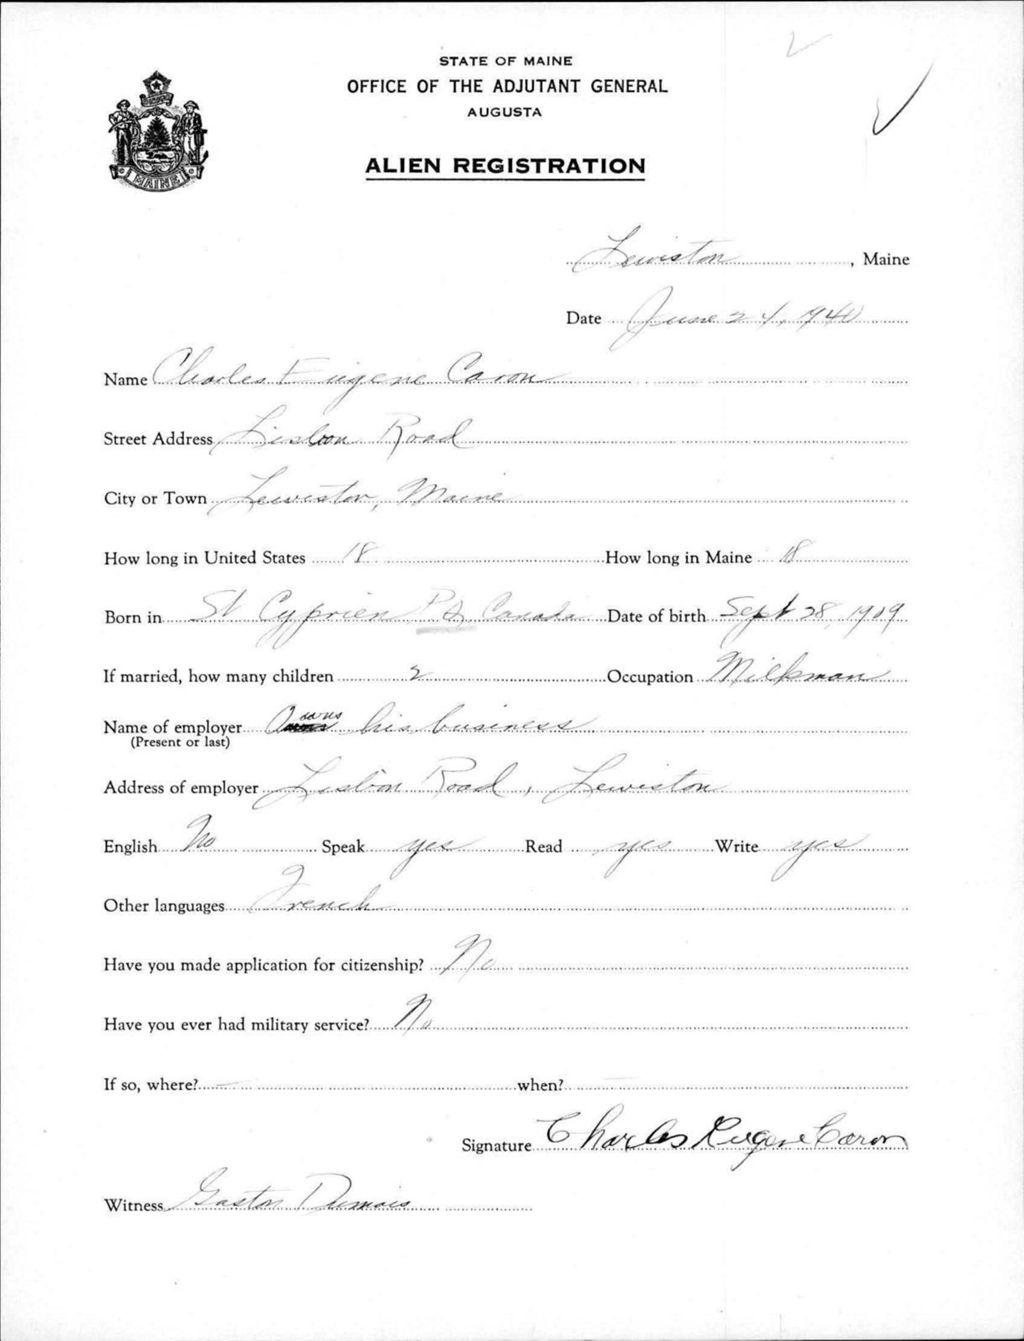 STATE OF MAINE
OFFICE OF THE ADJUTANT GENERAL
AUGUSTA
MAINE
ALIEN REGISTRATION
Lewiston, Maine
Date June 24, 1940
Name Charles Eugene Caron
Street Address Lisbon Road
City or Town Lewiston, Maine
How long in United States 18 How long in Maine 18
Born in St Cyprien P Q Canada Date of birth Sept 28, 1909
If married, how many children 2 Occupation Milkman
Name of employer Owns his business
(Present or last)
Address of employer Lisbon Road, Lewiston
English No Speak yes Read yes Write yes
Other languages French
Have you made application for citizenship? No
Have you ever had military service? No
If so, where? — when? —
Signature Charles Eugene Caron
Witness Gaston Dumais